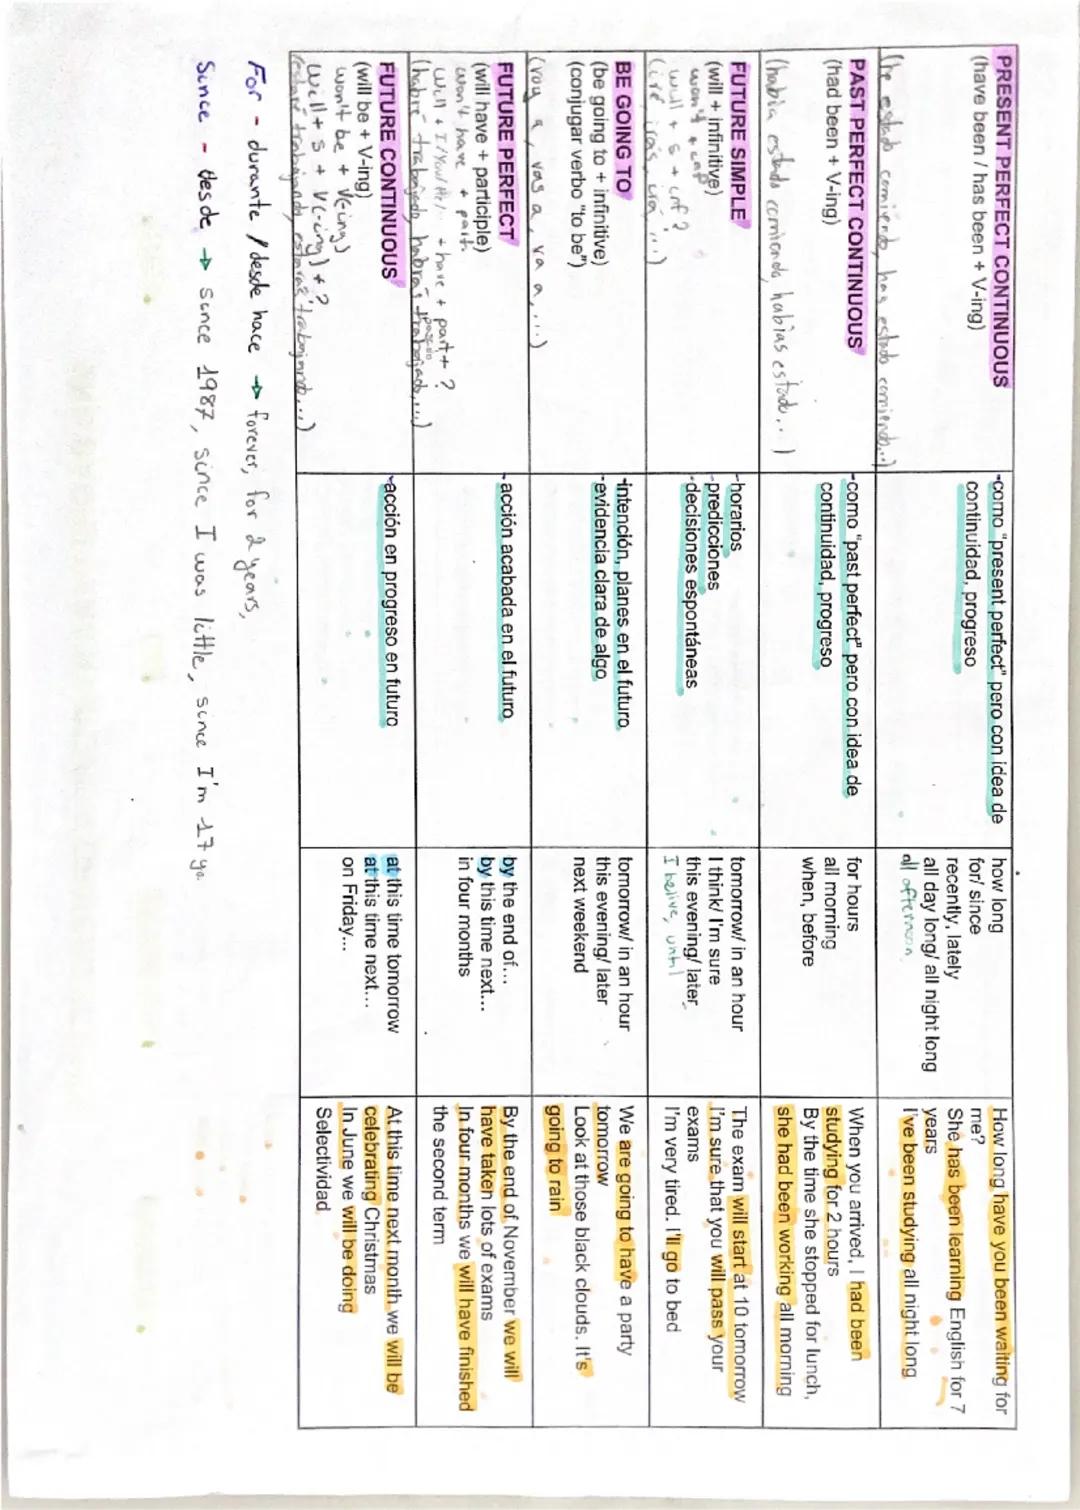 PRESENT PERFECT CONTINUOUS
(have been / has been + V-ing)
(he estado comiendo, has estado comiendo,...)
-como "present perfect" pero con idea de
continuidad, progreso
how long
for/ since
recently, lately
all day long/ all night long
all afternoon
How long have you been waiting for
me?
She has been learning English for 7
years
I've been studying all night long
PAST PERFECT CONTINUOUS
(had been + V-ing)
(había estado comiendo, habías estado,...)
-como "past perfect" pero con idea de
continuidad, progreso
for hours
all morning
when, before
When you arrived, I had been
studying for 2 hours
By the time she stopped for lunch,
she had been working all morning
FUTURE SIMPLE
(will + infinitive)
won't +
will + s + inf?
(iré, irás, irá,...)
-horarios
-predicciones
-decisiones espontáneas
tomorrow/ in an hour
I think/ I'm sure
this evening/ later
I belive, until
The exam will start at 10 tomorrow
I'm sure that you will pass your
exams
I'm very tired. I'll go to bed
BE GOING TO
(be going to + infinitive)
(conjugar verbo "to be")
(voy a, vas a, va a,...)
-intención, planes en el futuro
-evidencia clara de algo
tomorrow/ in an hour
this evening/ later
next weekend
We are going to have a party
tomorrow
Look at those black clouds. It's
going to rain
FUTURE PERFECT
(will have + participle)
won't have + part.
will + I/You/He/... + have + part + ?
(habré trabajado, habrás trabajado,...)
-acción acabada en el futuro
by the end of...
by this time next...
in four months
By the end of November we will
have taken lots of exams
In four months we will have finished
the second term
FUTURE CONTINUOUS
(will be + V-ing)
won't be + V(-ing)
will + s + V(-ing) + ?
(estaré trabajando, estarás trabajando...)
-acción en progreso en futuro
at this time tomorrow
at this time next...
on Friday...
At this time next month, we will be
celebrating Christmas
In June we will be doing
Selectividad
For - durante / desde hace → forever, for 2 years,
Since - desde → since 1987, since I was little, since I'm 17 yo.